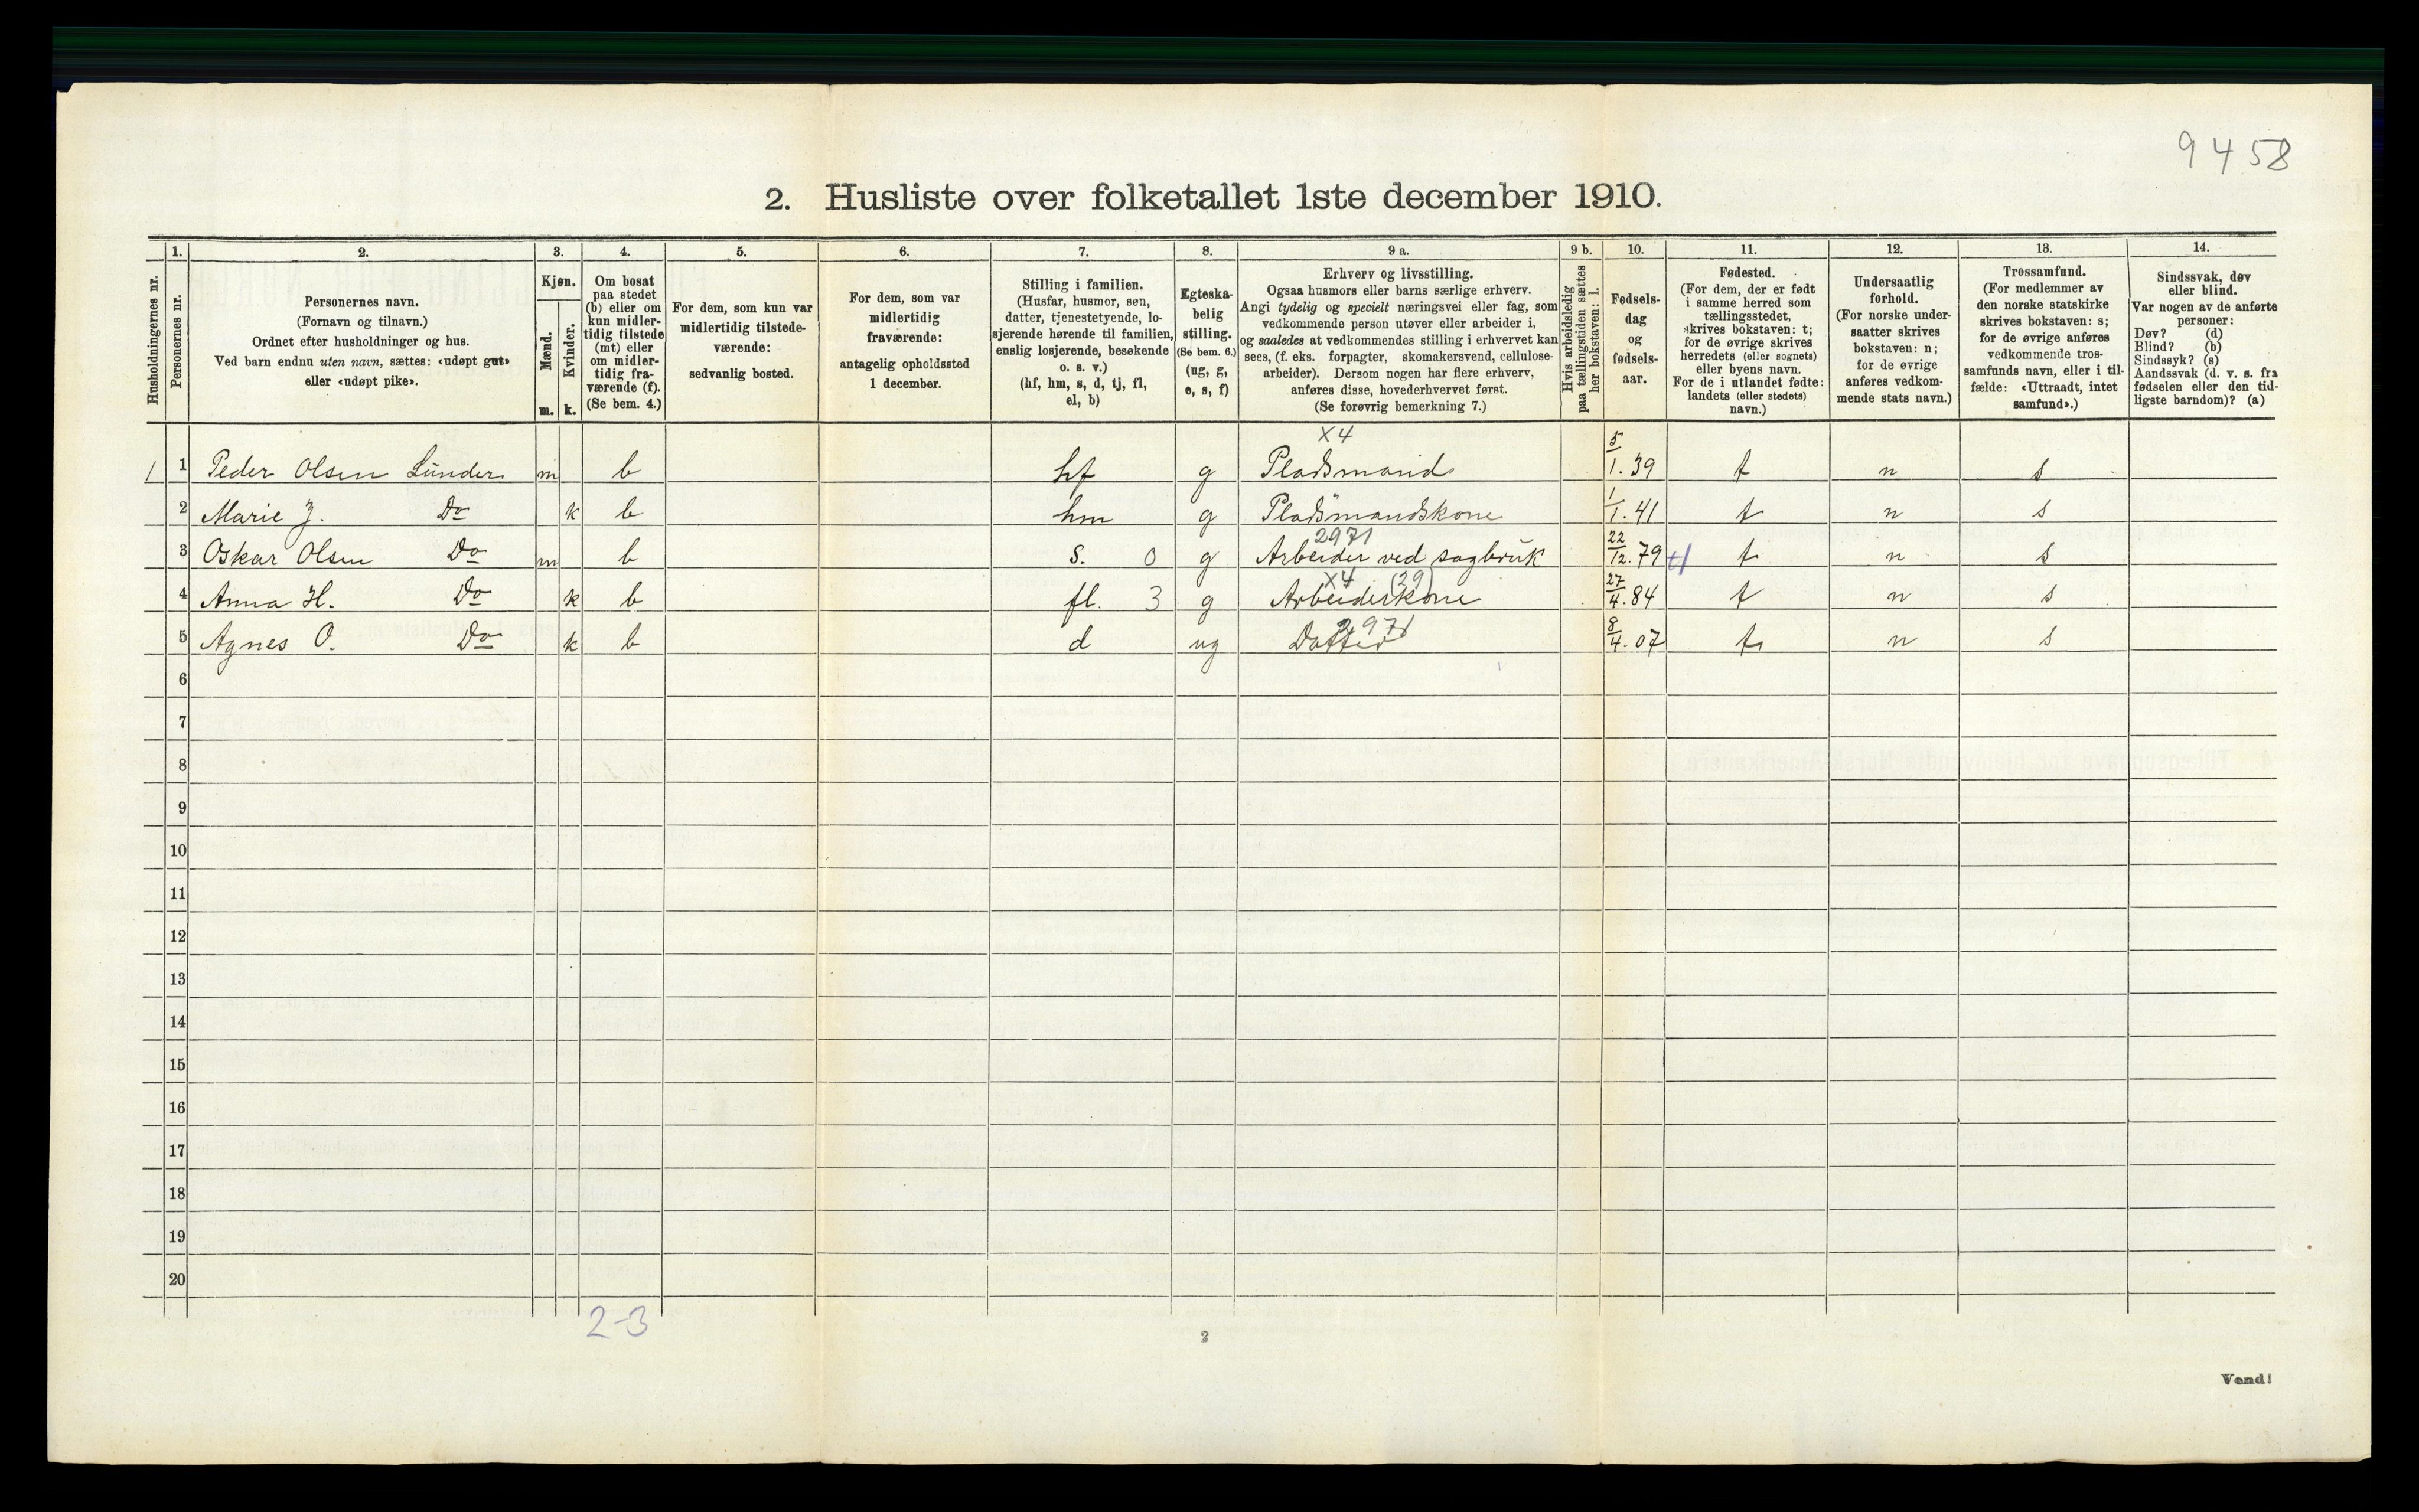 9458
2. Husliste over folketallet 1ste december 1910.
Husholdningernes nr.
1.
Personernes nr.
2.
Personernes navn.
(Fornavn og tilnavn.)
Ordnet efter husholdninger og hus.
Ved barn endnu uten navn, sættes: «udøpt gut»
eller «udøpt pike».
3.
Kjøn.
Mænd.
Kvinder.
m. k.
4.
Om bosat
paa stedet
(b) eller om
kun midler-
tidig tilstede
(mt) eller
om midler-
tidig fra-
værende (f).
(Se bem. 4.)
5.
For dem, som kun var
midlertidig tilstede-
værende:
sedvanlig bosted.
6.
For dem, som var
midlertidig
fraværende:
antagelig opholdssted
1 december.
7.
Stilling i familien.
(Husfar, husmor, søn,
datter, tjenestetyende, lo-
sjerende hørende til familien,
enslig losjerende, besøkende
o. s. v.)
(hf, hm, s, d, tj, fl,
el, b)
8.
Egteska-
belig
stilling.
(Se bem. 6.)
(ug, g,
e, s, f)
9 a.
Erhverv og livsstilling.
Ogsaa husmors eller barns særlige erhverv.
Angi tydelig og specielt næringsvei eller fag, som
vedkommende person utøver eller arbeider i,
og saaledes at vedkommendes stilling i erhvervet kan
sees, (f. eks. forpagter, skomakersvend, cellulose-
arbeider). Dersom nogen har flere erhverv,
anføres disse, hovederhvervet først.
(Se forøvrig bemerkning 7.)
9 b.
Hvis arbeidsledig
paa tællingstiden sættes
her bokstaven: l.
10.
Fødsels-
dag
og
fødsels-
aar.
11.
Fødested.
(For dem, der er født
i samme herred som
tællingsstedet,
skrives bokstaven: t;
for de øvrige skrives
herredets (eller sognets)
eller byens navn.
For de i utlandet fødte:
landets (eller stedets)
navn.)
12.
Undersaatlig
forhold.
(For norske under-
saatter skrives
bokstaven: n;
for de øvrige
anføres vedkom-
mende stats navn.)
13.
Trossamfund.
(For medlemmer av
den norske statskirke
skrives bokstaven: s;
for de øvrige anføres
vedkommende tros-
samfunds navn, eller i til-
fælde: «Uttraadt, intet
samfund».)
14.
Sindssvak, døv
eller blind.
Var nogen av de anførte
personer:
Døv? (d)
Blind? (b)
Sindssyk? (s)
Aandssvak (d. v. s. fra
fødselen eller den tid-
ligste barndom)? (a)
X4
1 1 Peder Olsen Lunder m b hf g Pladsmand 5/1. 39 t n s
2 Marie J. Do k b hm g Pladsmandskone 1/1. 41 t n s
2971
3 Oskar Olsen Do m b s. 0 g Arbeider ved sagbruk 22/12. 79 t n s
X4 (29)
4 Anna H. Do k b fl. 3 g Arbeiderkone 27/4. 84 t n s
2971
5 Agnes O. Do k b d ug Datter 8/4. 07 t n s
6
7
8
9
10
11
12
13
14
15
16
17
18
19
20
2-3
2
Vend!